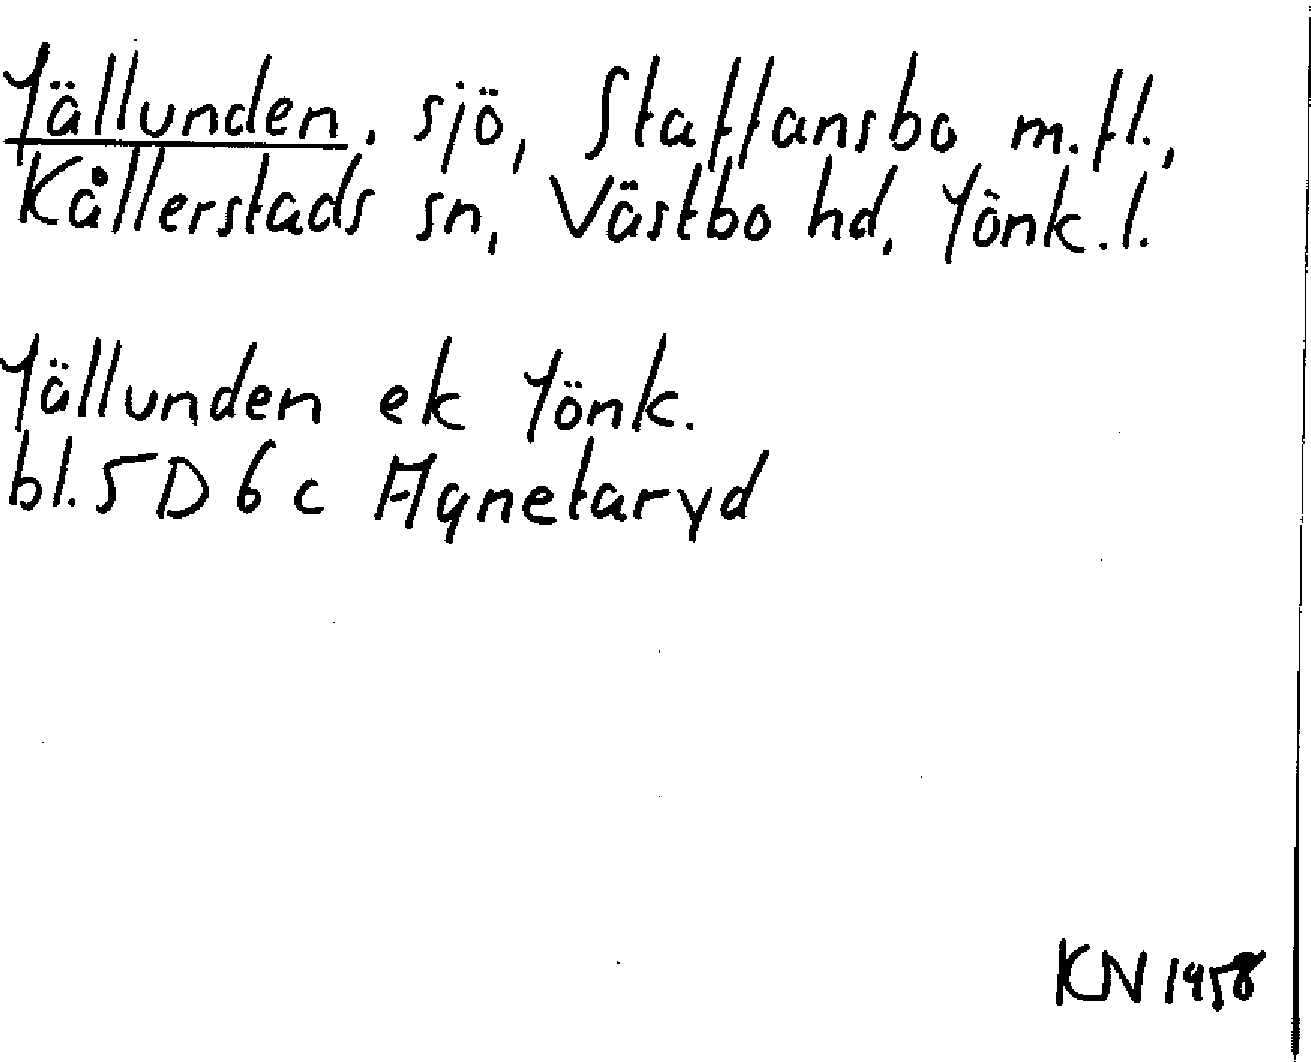 Jällunden, sjö, Staffansbo m.fl.,
Kållerstads sn, Västbo hd, Jönk.l.
Jällunden ek Jönk.
bl. 5D 6c Agnetaryd
KN 1958